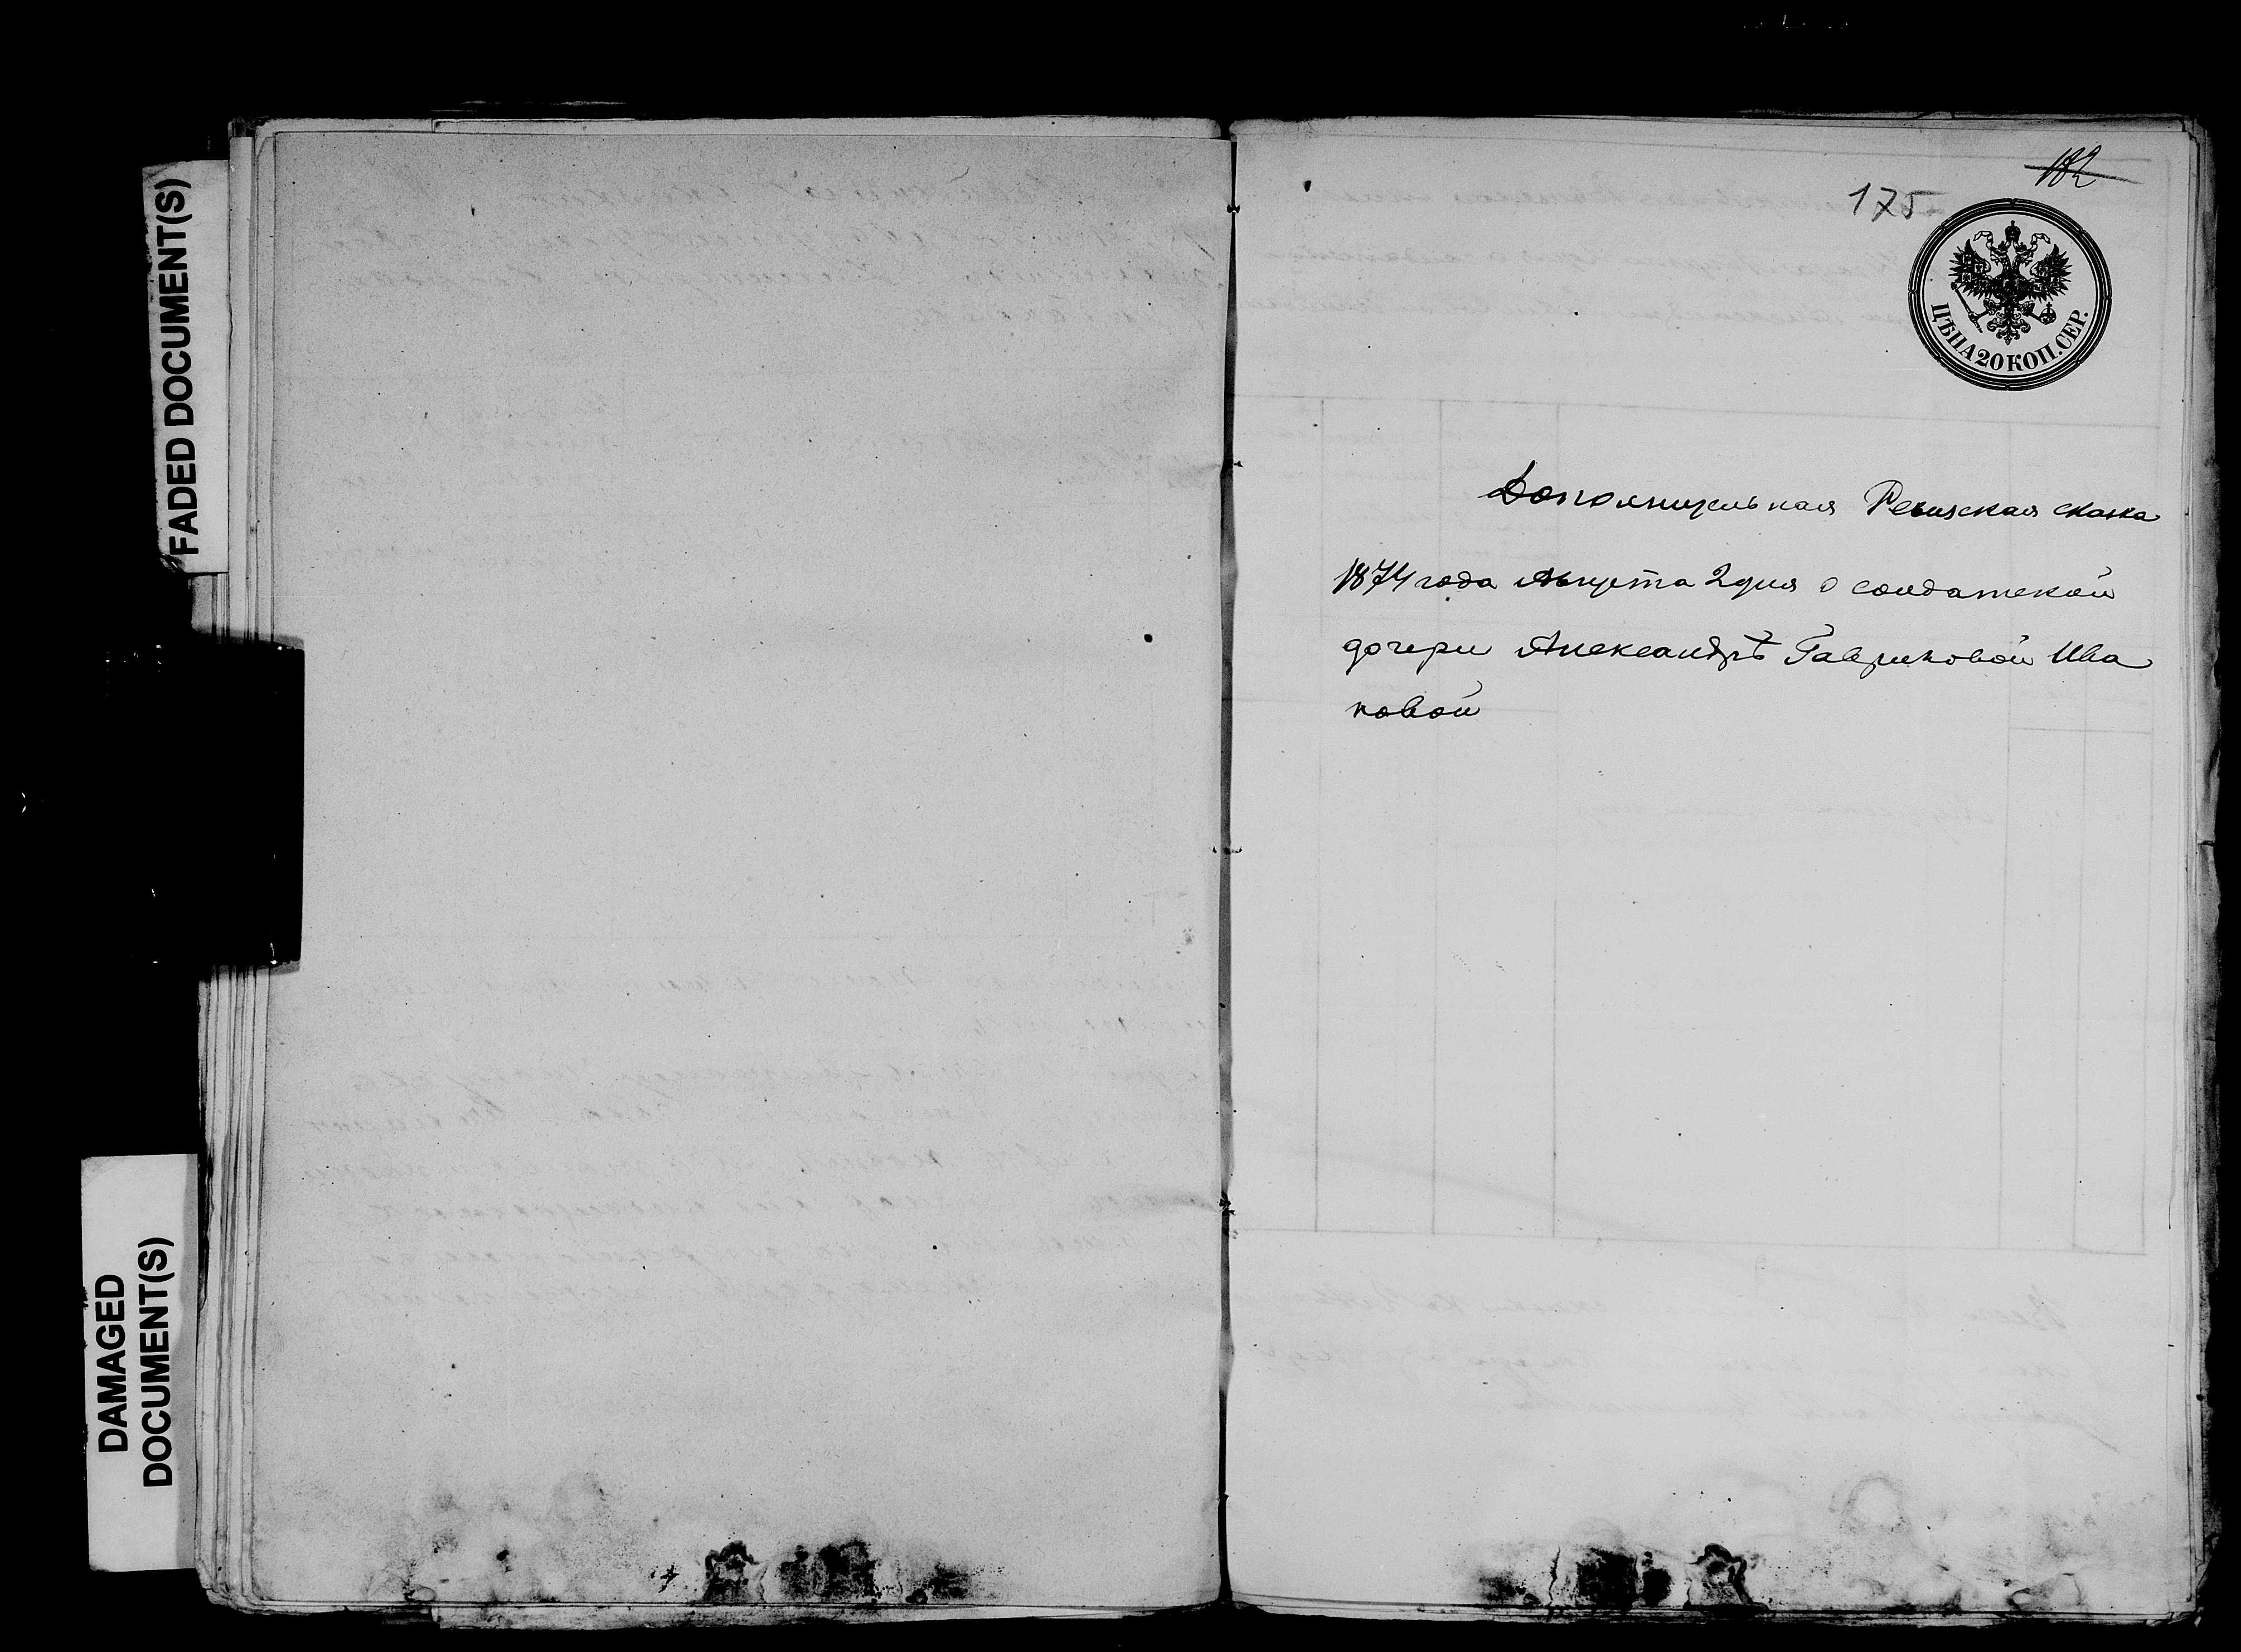 FADED DOCUMENT(S)
DAMAGED
DOCUMENT(S)
182
175
ЦѢНА 20 КОП. СЕР.
Дополнительная Ревизская сказка
1874 года Августа 2 дня о солдатской
дочери Александрѣ Гавриловой Ива
новой